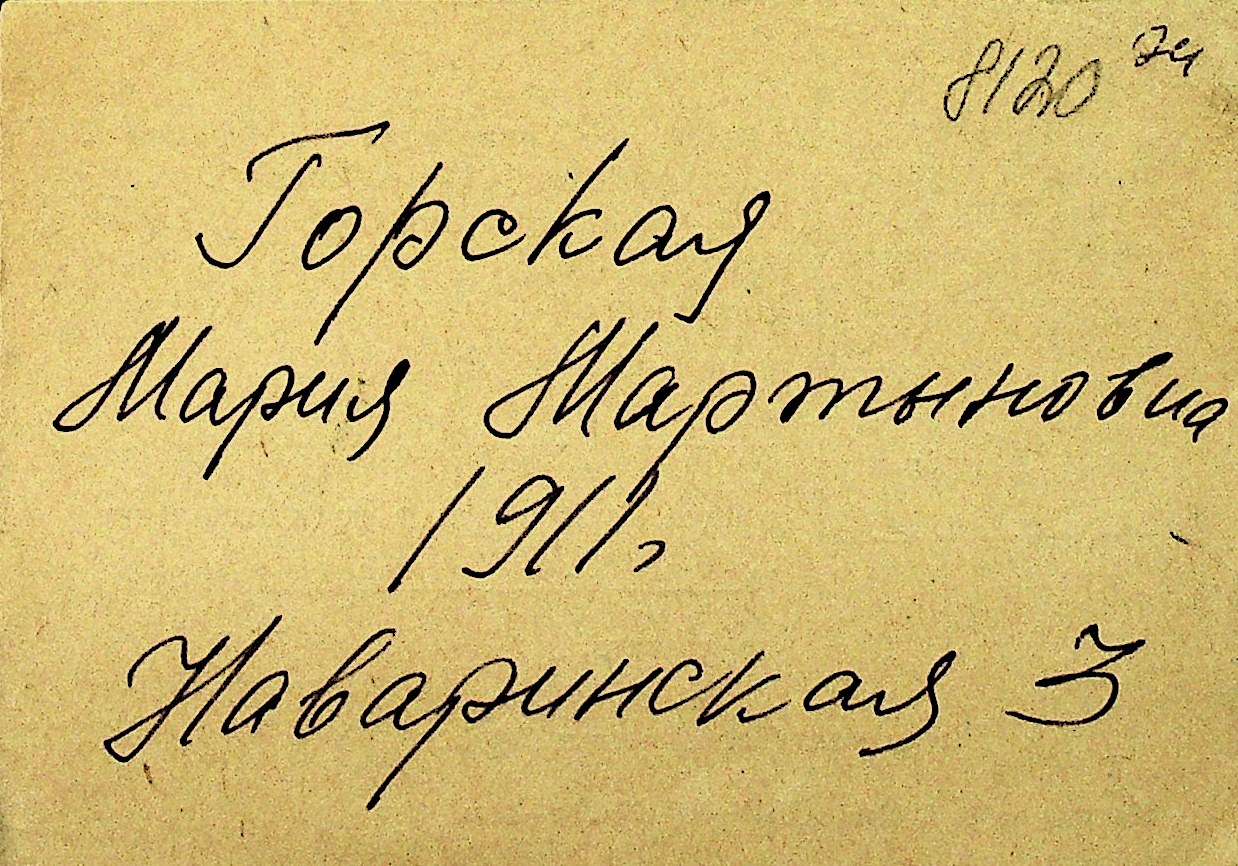 8120 74
Горская
Мария Мартыновна
1911г
Наваринская 3